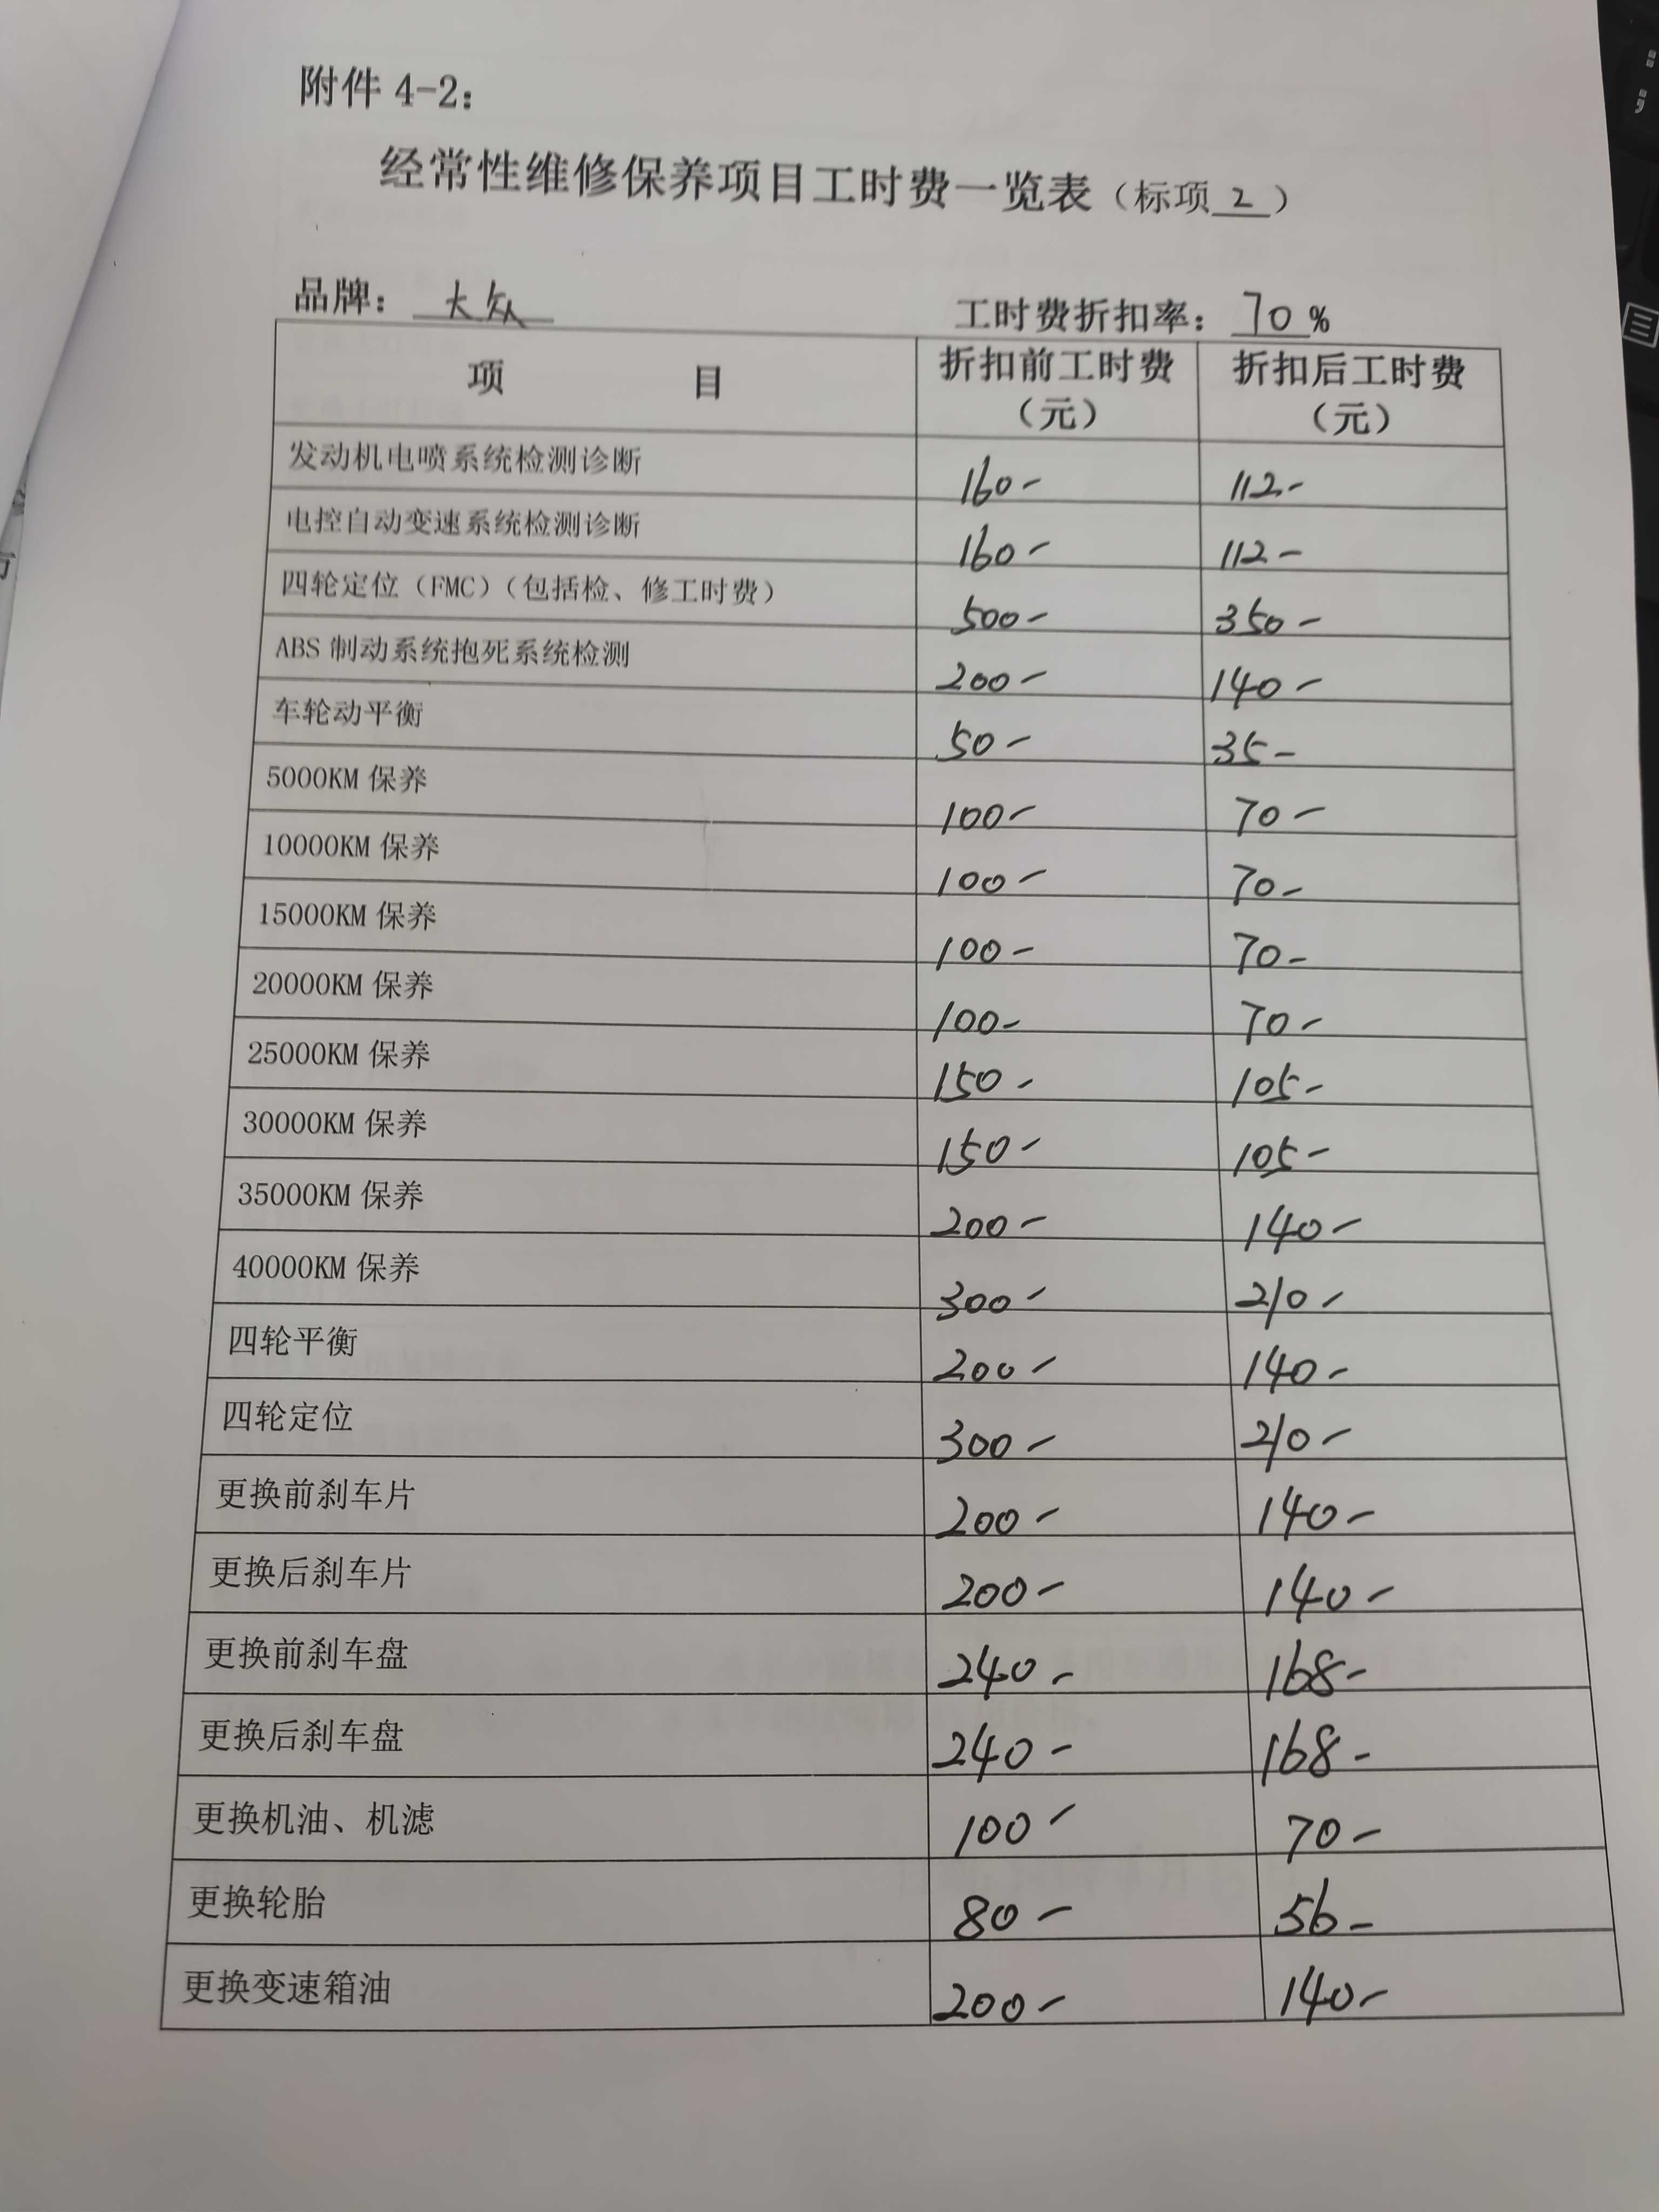 附件 4-2：
经常性维修保养项目工时费一览表（标项 2 ）
品牌： 大众 工时费折扣率： 70 %
项 目 折扣前工时费（元） 折扣后工时费（元）
发动机电喷系统检测诊断 160- 112-
电控自动变速系统检测诊断 160- 112-
四轮定位（FMC）（包括检、修工时费） 500- 350-
ABS 制动系统抱死系统检测 200- 140-
车轮动平衡 50- 35-
5000KM 保养 100- 70-
10000KM 保养 100- 70-
15000KM 保养 100- 70-
20000KM 保养 100- 70-
25000KM 保养 150- 105-
30000KM 保养 150- 105-
35000KM 保养 200- 140-
40000KM 保养 300- 210-
四轮平衡 200- 140-
四轮定位 300- 210-
更换前刹车片 200- 140-
更换后刹车片 200- 140-
更换前刹车盘 240- 168-
更换后刹车盘 240- 168-
更换机油、机滤 100- 70-
更换轮胎 80- 56-
更换变速箱油 200- 140-